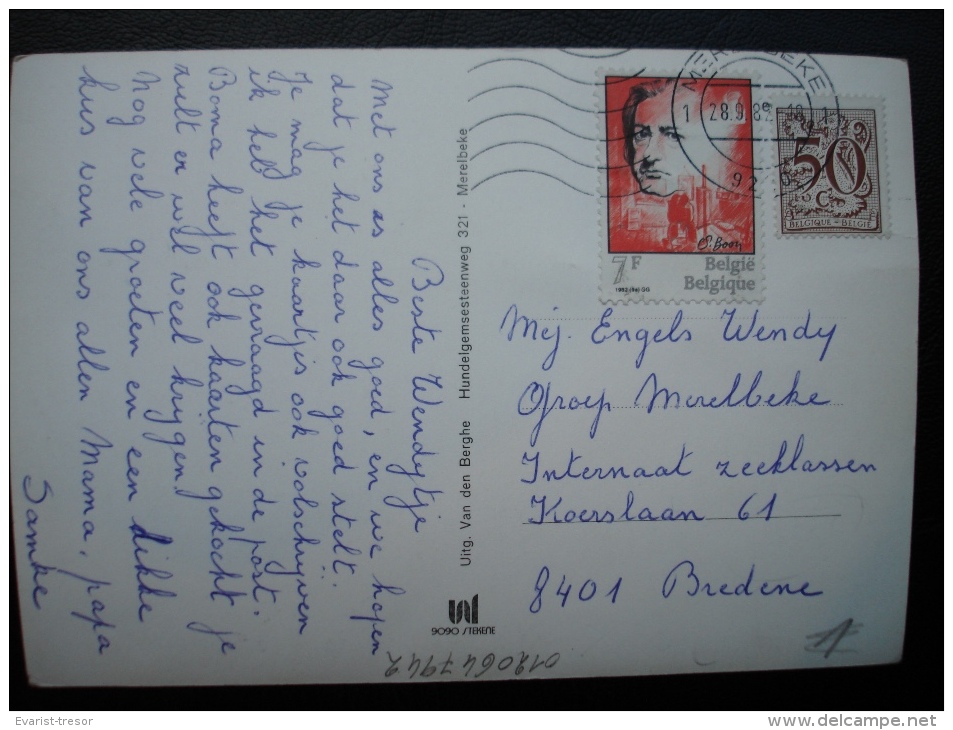 Beste Wendytje
Met ons is alles goed, en we hopen
dat je het daar ook goed stelt.
Je mag je kaartjes ook volschrijven
ik heb het gevraagd in de post.
Boma heeft ook kaarten gekocht je
zult er wel veel krijgen!
Nog vele groeten en een dikke
kus van ons allen Mama, papa
Samke
Uitg. Van den Berghe Hundelgemsesteenweg 321 - Merelbeke
9090 STEKENE
MERELBEKE
28.9.82
7F
België
Belgique
50
C
BELGIQUE - BELGIË
Mej. Engels Wendy
Groep Merelbeke
Internaat zeeklassen
Koerslaan 61
8401 Bredene
0120647942
Evarist-tresor
www.delcampe.net